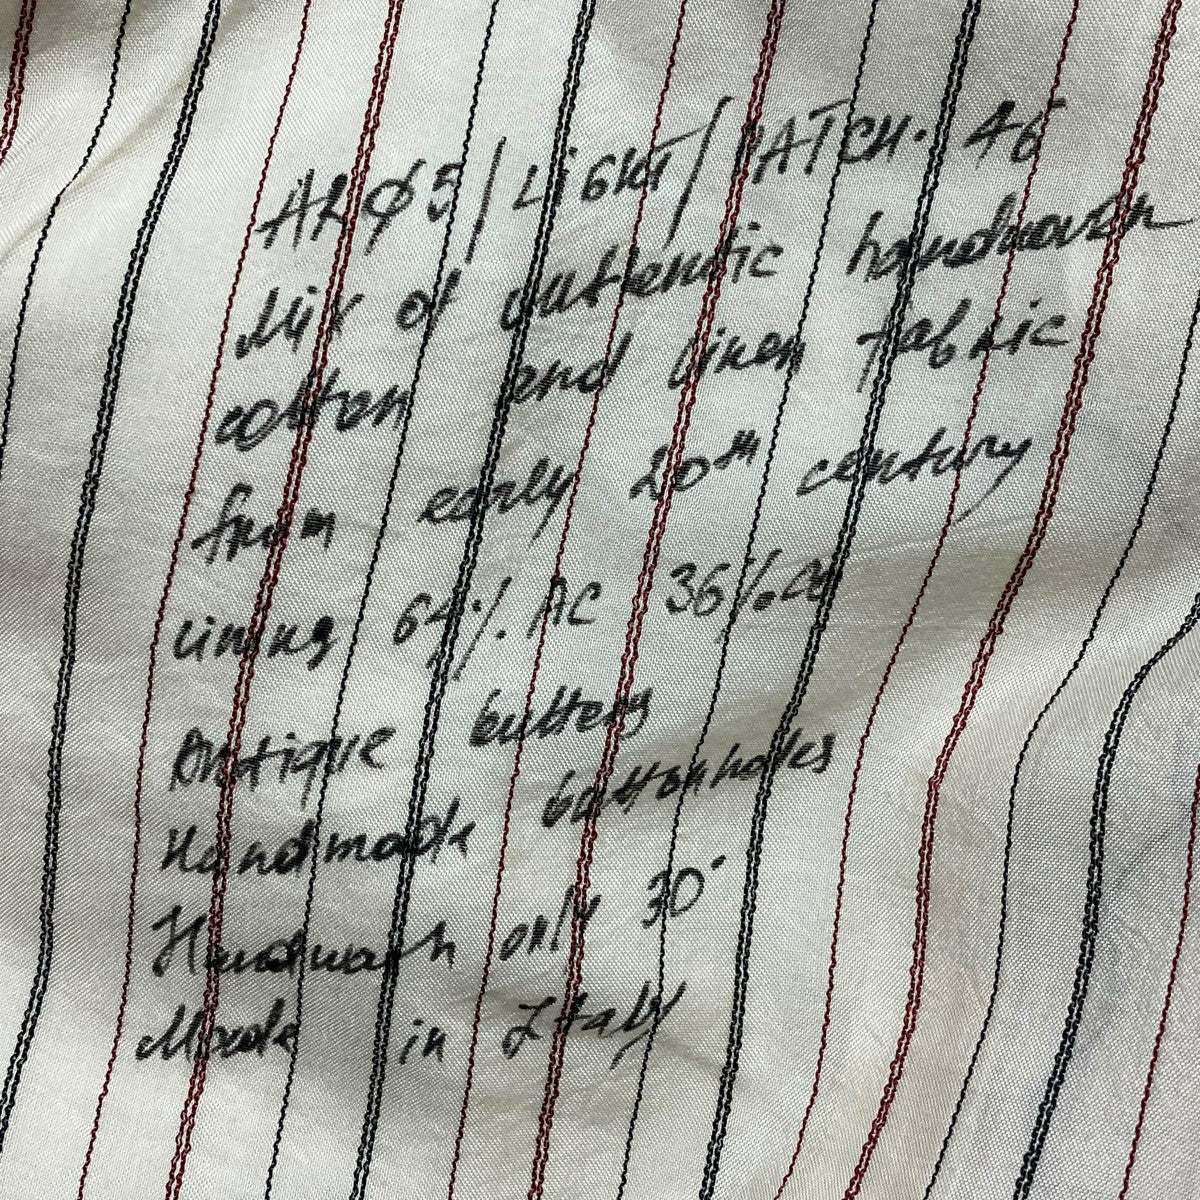 ARØ5/LIGHT/PATCH. 46
Mix of autentic handwoven
cotton and linen fabric
from early 20th century
Lining 64% AC 36% CO
Antique buttons
Handmade buttonholes
Handwash only 30°
Made in Italy